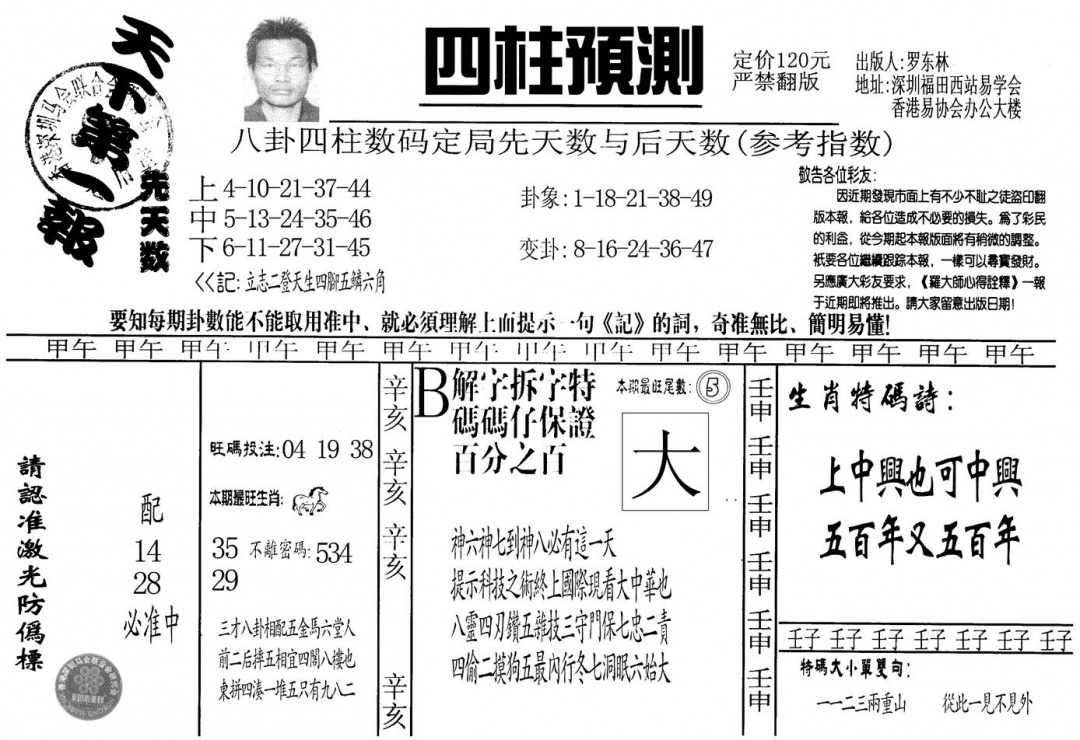 天下第一報
四柱預測
定价120元
严禁翻版
出版人:罗东林
地址:深圳福田西站易学会
香港易协会办公大楼
八卦四柱数码定局先天数与后天数(参考指数)
先天数
上4-10-21-37-44
中5-13-24-35-46
下6-11-27-31-45
<<記:立志二登天生四腳五鱗六角
卦象:1-18-21-38-49
变卦:8-16-24-36-47
敬告各位彩友:
因近期發現市面上有不少不耻之徒盜印翻
版本報,給各位造成不必要的損失。為了彩民
的利益,從今期起本報版面將有稍微的調整。
衹要各位繼續跟踪本報,一樣可以尋寶發財。
另應廣大彩友要求,《羅大師心得詮釋》一報
于近期即將推出。請大家留意出版日期!
要知每期卦數能不能取用准中、就必須理解上面提示一句《記》的詞,奇准無比、簡明易懂!
甲午 甲午 甲午 甲午 甲午 甲午 甲午 甲午 甲午 甲午 甲午 甲午 甲午 甲午 甲午
請認准激光防僞標
配
14
28
必准中
旺碼投注:04 19 38
本期最旺生肖:
35 不離密碼:534
29
三才八卦相配五金馬六堂人
前二后摔五相宜四閣八樓也
東拼四湊一堆五只有九八二
辛亥
辛亥
辛亥
辛亥
B解字拆字特
碼碼仔保證
百分之百
本期最旺尾數:5
大
神六神七到神八必有這一天
提示科技之術終上國際現看大中華也
八靈四刃鑽五雜技三守門保七忠二責
四偷二摸狗五最內行冬七洞眠六始大
壬申
壬申
壬申
壬申
壬申
壬申
生肖特碼詩:
上中興也可中興
五百年又五百年
壬子 壬子 壬子 壬子 壬子 壬子 壬子
特碼大小單雙句:
一一二三兩重山 從此一見不見外